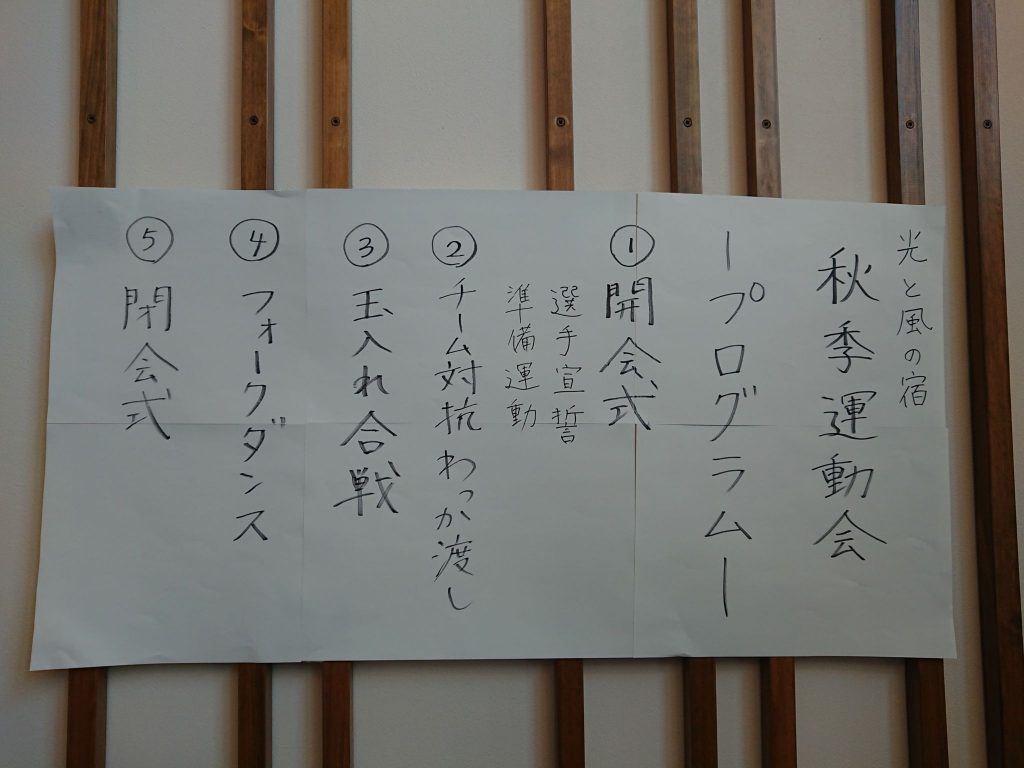 光と風の宿
秋季運動会
ープログラムー
①開会式
選手宣誓
準備運動
②チーム対抗わっか渡し
③玉入れ合戦
④フォークダンス
⑤閉会式